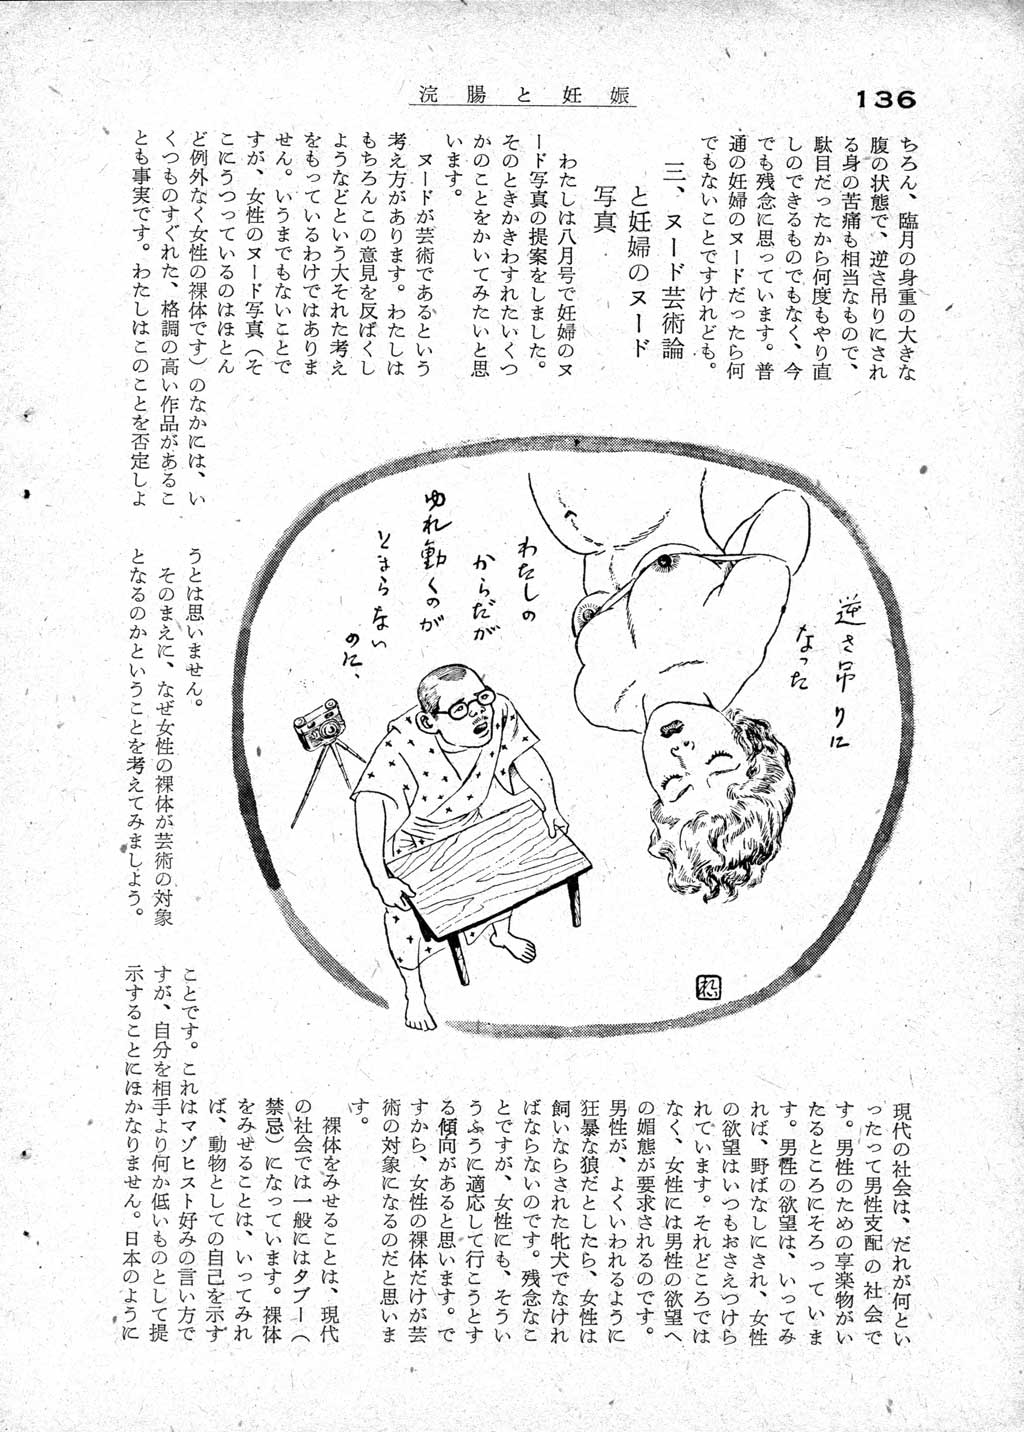 浣腸と妊娠
136
ちろん、臨月の身重の大きな
腹の状態で、逆さ吊りにされ
る身の苦痛も相当なもので、
駄目だったから何度もやり直
しのできるものでもなく、今
でも残念に思っています。普
通の妊婦のヌードだったら何
でもないことですけれども。
三、ヌード芸術論
と妊婦のヌード
写真
わたしは八月号で妊婦のヌ
ード写真の提案をしました。
そのときかきわすれたいくつ
かのことをかいてみたいと思
います。
ヌードが芸術であるという
考え方があります。わたしは
もちろんこの意見を反ばくし
ようなどという大それた考え
をもっているわけではありま
せん。いうまでもないことで
すが、女性のヌード写真（そ
こにうつっているのはほとん
ど例外なく女性の裸体です）のなかには、い
くつものすぐれた、格調の高い作品があるこ
とも事実です。わたしはこのことを否定しよ
うとは思いません。
そのまえに、なぜ女性の裸体が芸術の対象
となるのかということを考えてみましよう。
逆さ吊りに
なった
わたしの
からだが
ゆれ動くのが
とまらない
のに、
現代の社会は、だれが何とい
ったって男性支配の社会で
す。男性のための享楽物がい
たるところにそろっていま
す。男性の欲望は、いってみ
れば、野ばなしにされ、女性
の欲望はいつもおさえつけら
れています。それどころでは
なく、女性には男性の欲望へ
の媚態が要求されるのです。
男性が、よくいわれるように
狂暴な狼だとしたら、女性は
飼いならされた牝犬でなけれ
ばならないのです。残念なこ
とですが、女性にも、そうい
うふうに適応して行こうとす
る傾向があると思います。で
すから、女性の裸体だけが芸
術の対象になるのだと思いま
す。
裸体をみせることは、現代
の社会では一般にはタブー（
禁忌）になっています。裸体
をみせることは、いってみれ
ば、動物としての自己を示す
ことです。これはマゾヒスト好みの言い方で
すが、自分を相手より何か低いものとして提
示することにほかなりません。日本のように